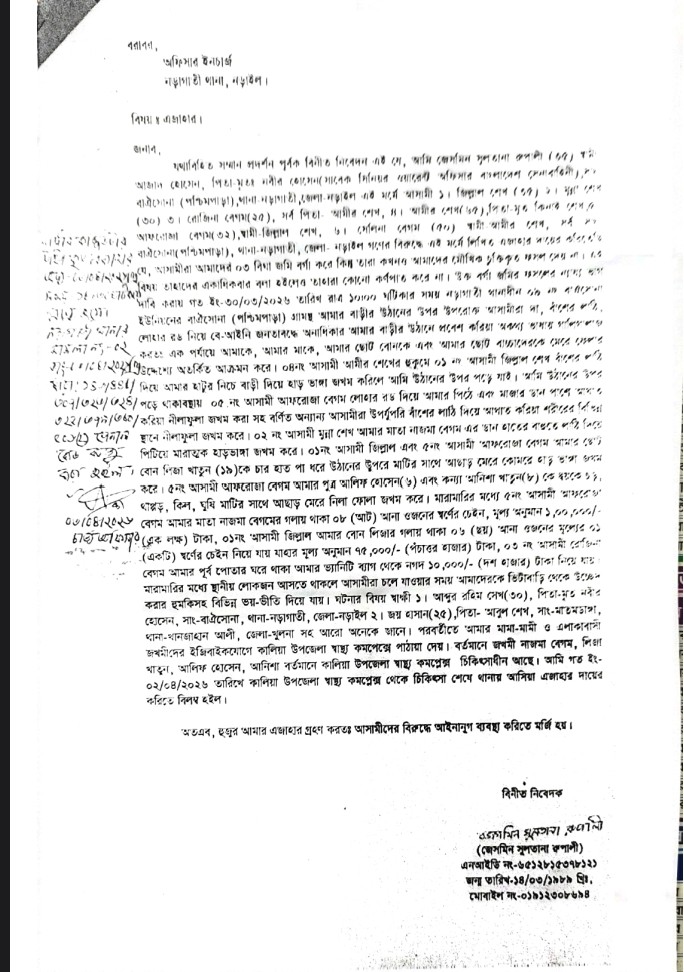 বরাবর,
অফিসার ইনচার্জ
নড়াগাতী থানা, নড়াইল।
বিষয় ঃ এজাহার।
জনাব,
যথাবিহিত সম্মান প্রদর্শন পূর্বক বিনীত নিবেদন এই যে, আমি জেসমিন সুলতানা রুপালী (৩৫)
আজান হোসেন, পিতা-মৃত নবীর হোসেন(সাবেক সিনিয়র ওয়ারেন্ট অফিসার বাংলাদেশ সেনাবাহিনী),
বাঐসোনা (পশ্চিমপাড়া),থানা-নড়াগাতী,জেলা-নড়াইল এই মর্মে আসামী ১। জিল্লাল শেখ (৩৫) ২। মুন্না শেখ
(৩০) ৩। রোজিনা বেগম(২৫), সর্ব পিতা- আমীর শেখ, ৪। আমীর শেখ(৬৫),পিতা-মৃত
আফরোজা বেগম(৩২),স্বামী-জিল্লাল শেখ, ৬। সেলিনা বেগম (৫০) স্বামী-আমীর শেখ, সর্ব
বাঐসোনা(পশ্চিমপাড়া), থানা-নড়াগাতী, জেলা- নড়াইল গণের বিরুদ্ধে এই মর্মে লিখিত এজাহার দায়ের করিতেছি
যে, আসামীরা আমাদের ০৩ বিঘা জমি বর্গা করে কিন্তু তারা কখনও আমাদের মৌখিক চুক্তিকৃত ফসল দেয় না।
বিষয় তাহাদের একাধিকবার বলা হইলেও তাহারা কোনো কর্ণপাত করে না। উক্ত বর্গা জমির ফসলের ন্যায্য ভাগ
দাবি করায় গত ইং-৩০/০৩/২০২৬ তারিখ রাত্র ১০:০০ ঘটিকার সময় নড়াগাতী থানাধীন ০৯ নং বাঐসোনা
ইউনিয়নের বাঐসোনা (পশ্চিমপাড়া) গ্রামস্থ আমার বাড়ীর উঠানের উপর উপরোক্ত আসামীরা দা, বাঁশের লাঠি,
লোহার রড নিয়ে বে-আইনি জনতাবদ্ধে অনাধিকার আমার বাড়ীর উঠানে প্রবেশ করিয়া অকথ্য ভাষায় গালিগালাজ
করতঃ এক পর্যায়ে আমাকে, আমার মাকে, আমার ছোট বোনকে এবং আমার ছোট বাচ্চাদেরকে মেরে ফেলার
উদ্দেশ্যে অতর্কিত আক্রমন করে। ০৪নং আসামী আমীর শেখের হুকুমে ০১ নং আসামী জিল্লাল শেখ বাঁশের লাঠি
দিয়ে আমার হাটুর নিচে বাড়ী দিয়ে হাড় ভাঙ্গা জখম করিলে আমি উঠানের উপর পড়ে যাই। আমি উঠানের উপর
পড়ে থাকাবস্থায় ০৫ নং আসামী আফরোজা বেগম লোহার রড দিয়ে আমার পিঠে এবং মাজার ডান পাশে আঘাত
করিয়া নীলাফুলা জখম করা সহ বর্ণিত অন্যান্য আসামীরা উর্যুপুরি বাঁশের লাঠি দিয়ে আঘাত করিয়া শরীরের বিভিন্ন
স্থানে নীলাফুলা জখম করে। ০২ নং আসামী মুন্না শেখ আমার মাতা নাজমা বেগম এর ডান হাতের বাহুতে লাঠি দিয়ে
পিটিয়ে মারাত্মক হাড়ভাঙ্গা জখম করে। ০১নং আসামী জিল্লাল এবং ৫নং আসামী আফরোজা বেগম আমার ছোট
বোন লিজা খাতুন (১৯)কে চার হাত পা ধরে উঠানের উপরে মাটির সাথে আছাড় মেরে কোমরে হাড় ভাঙ্গা জখম
করে। ৫নং আসামী আফরোজা বেগম আমার পুত্র আলিফ হোসেন(৬) এবং কন্যা আনিশা খাতুন(৮) কে ছয়কে চড়,
থাপ্পড়, কিল, ঘুষি মাটির সাথে আছাড় মেরে নিলা ফোলা জখম করে। মারামারির মধ্যে ৫নং আসামী আফরোজা
বেগম আমার মাতা নাজমা বেগমের গলায় থাকা ০৮ (আট) আনা ওজনের স্বর্ণের চেইন, মূল্য অনুমান ১,০০,০০০/-
(এক লক্ষ) টাকা, ০১নং আসামী জিল্লাল আমার বোন লিজার গলায় থাকা ০৬ (ছয়) আনা ওজনের মূল্যের ০১
(একটি) স্বর্ণের চেইন নিয়ে যায় যাহার মূল্য অনুমান ৭৫,০০০/- (পঁচাত্তর হাজার) টাকা, ০৩ নং আসামী রোজিনা
বেগম আমার পূর্ব পোতার ঘরে থাকা আমার ভ্যানিটি ব্যাগ থেকে নগদ ১০,০০০/- (দশ হাজার) টাকা নিয়ে যায়।
মারামারির মধ্যে স্থানীয় লোকজন আসতে থাকলে আসামীরা চলে যাওয়ার সময় আমাদেরকে ভিটাবাড়ি থেকে উচ্ছেদ
করার হুমকিসহ বিভিন্ন ভয়-ভীতি দিয়ে যায়। ঘটনার বিষয় স্বাক্ষী ১। আব্দুর রহিম সেখ(৩০), পিতা-মৃত নবীর
হোসেন, সাং-বাঐসোনা, থানা-নড়াগাতী, জেলা-নড়াইল ২। জয় হাসান(২৫),পিতা- আবুল শেখ, সাং-মাতমডাঙ্গা,
থানা-খানজাহান আলী, জেলা-খুলনা সহ আরো অনেকে জানে। পরবর্তীতে আমার মামা-মামী ও এলাকাবাসী
জখমীদের ইজিবাইকযোগে কালিয়া উপজেলা স্বাস্থ্য কমপেক্সে পাঠায়া দেয়। বর্তমানে জখমী নাজমা বেগম, লিজা
খাতুন, আলিফ হোসেন, আনিশা বর্তমানে কালিয়া উপজেলা স্বাস্থ্য কমপ্লেক্স চিকিৎসাধীন আছে। আমি গত ইং-
০২/০৪/২০২৬ তারিখে কালিয়া উপজেলা স্বাস্থ্য কমপ্লেক্স থেকে চিকিসা শেষে থানায় আসিয়া এজাহার দায়ের
করিতে বিলম্ব হইল।
অতএব, হুজুর আমার এজাহার গ্রহণ করতঃ আসামীদের বিরুদ্ধে আইনানুগ ব্যবস্থা করিতে মর্জি হয়।
বিনীত নিবেদক
জেসমিন সুলতানা রুপালী
(জেসমিন সুলতানা রুপালী)
এনআইডি নং-৬৫১২৮১৫৩৭৮১২১
জন্ম তারিখ-১৪/০৩/১৯৮৯ খ্রিঃ,
মোবাইল নং-০১৯১২৩০৮৬৯৪